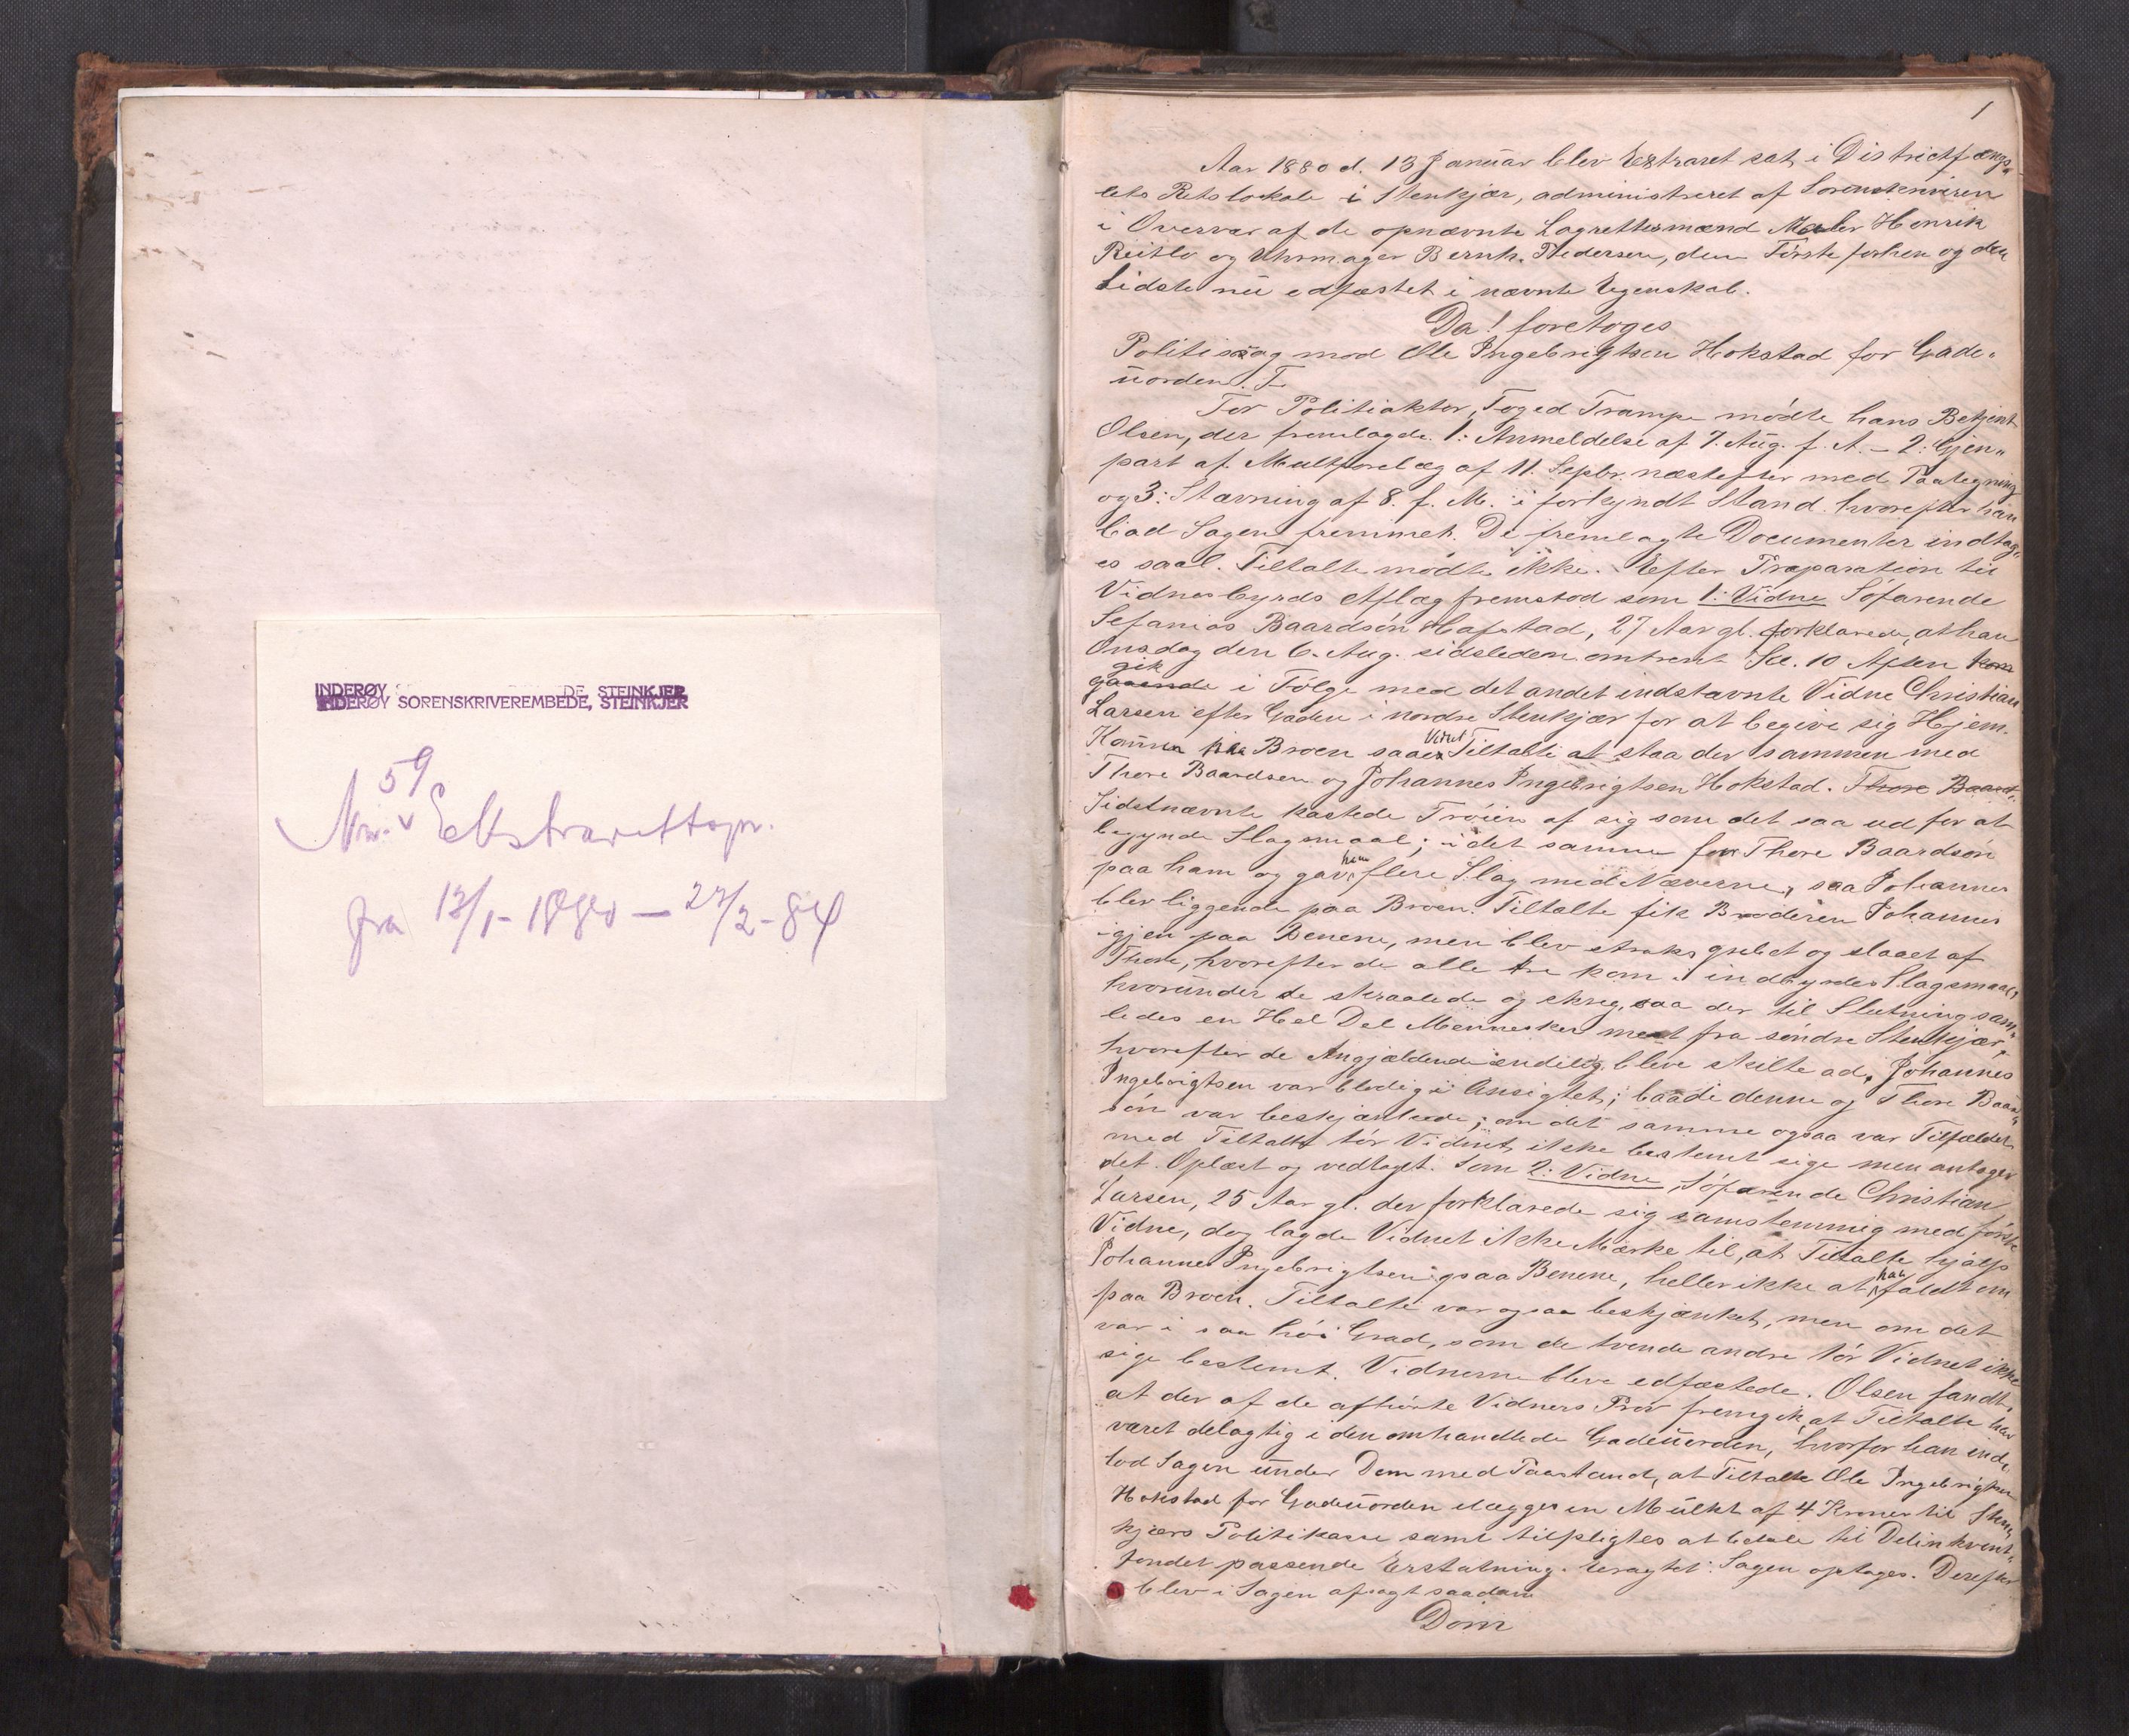 INDERØY SORENSKRIVEREMBEDE, STEINKJER
INDERØY SORENSKRIVEREMBEDE, STEINKJER
59
Nr. Ekstrarettspr.
fra 13/1-1880 - 27/2-84
1
Aar 1880 d. 13 Januar blev Extraret sat i Districtfængs„
lets Retslokale i Stenkjær, administreret af Sorenskriveren
i Overvær af de opnævnte Lagrettesmænd Maler Henrik
og Uhrmager Bernh. Pedersen, den Første forhen og den
Sidste nu edfæstet i nævnte Egenskab.
Da! foretoges
Politisag mod Ole Ingebrigtsen Hokstad for Gade„
uorden. T.
For Politiaktor, Foged Trampe mødte hans Betjent
Olsen, der fremlagde 1: Anmeldelse af 7. Aug. f. A. - 2: Gjen„
part af Mulktforelæg af 11. Sepbr. næstefter med Paategning
og 3: Stævning af 8. f. M. i forkyndt Stand hvorefter han
bad Sagen fremmet. De fremlagte Documenter indtag„
es saal. Tiltalte mødte ikke. Efter Præparation til
Vidnesbyrds Aflæg fremstod som 1: Vidne Søfarende
Sefanias Baardsøn Hafstad, 27 Aar gl. forklarede, at han
Onsdag den 6. Aug. sidstleden omtrent Kl. 10 Aften kom
gik
gaaende i Følge med det andet indstævnte Vidne Christian
Larsen efter Gaden i nordre Stenkjær for at begive sig Hjem.
Vidnet
Kommen paa Broen saaes Tiltalte at staa der sammen med
Thore Baardsen og Johannes Ingebrigtsen Hokstad. Thore Baard„
Sidstnævnte kastede Trøien af sig som det saa ud for at
begynde Slagsmaal; i det samme for Thore Baardsøn
ham
paa ham og gav flere Slag med Næverne, saa Johannes
blev liggende paa Broen. Tiltalte fik Broderen Johannes
igjen paa Benene, men blev straks grebet og slaaet af
Thore, hvorefter de alle tre kom i indbyrdes Slagsmaal,
hvorunder de skraalede og skreg, saa der til Slutning sam„
ledes en Hel Del Mennesker mest fra søndre Stenkjær,
hvorefter de Angjældende endelig bleve skilte ad. Johannes
Ingebrigtsen var blodig i Ansigtet; baade denne og Thore Baard„
søn var beskjænkede; om det samme ogsaa var Tilfældet
med Tiltalte tør Vidnet ikke bestemt sige men antager
det. Oplæst og vedtaget. Som 2: Vidne, Søfarende Christian
Larsen, 25 Aar gl. der forklarede sig samstemmig med første
Vidne, dog lagde Vidnet ikke Mærke til, at Tiltalte hjalp
han
Johannes Ingebrigtsen paa Benene, heller ikke at faldt om
paa Broen. Tiltalte var ogsaa beskjænket, men om det
var i saa høi Grad, som de tvende andre tør Vidnet ikke
sige bestemt. Vidnerne bleve edfæstede. Olsen fandt,
at der af de afhørte Vidners Prov fremgik, at Tiltalte har
været delagtig i den omhandlede Gadeuorden, hvorfor han ind„
lod Sagen under Dom med Paastand, at Tiltalte Ole Ingebrigtsen
Hokstad for Gadeuorden ilægges en Mulkt af 4 Kroner til Sten„
kjærs Politikasse samt tilpligtes at betale til Delinkvent„
fondet passende Erstatning. Eragtet: Sagen optages. Derefter
blev i Sagen afsagt saadan
Dom